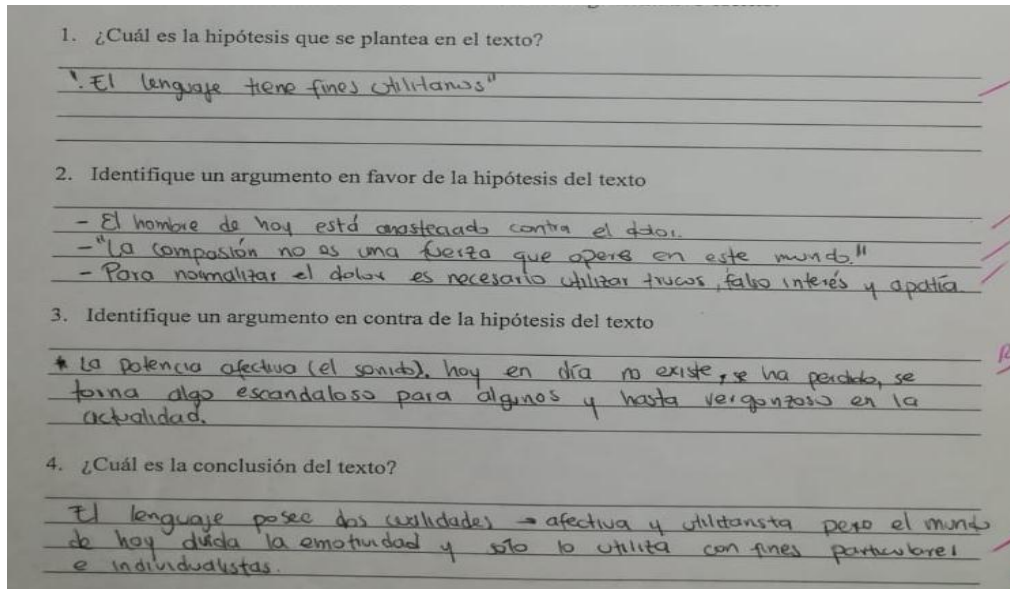 1. ¿Cuál es la hipótesis que se plantea en el texto?
"El lenguaje tiene fines utilitarios"
2. Identifique un argumento en favor de la hipótesis del texto
- El hombre de hoy está anastesiado contra el dolor.
- "La compasión no es una fuerza que opere en este mundo."
- Para normalizar el dolor es necesario utilizar trucos, falso interés y apatía.
3. Identifique un argumento en contra de la hipótesis del texto
* La potencia afectiva (el sonido). hoy en día no existe, se ha perdido, se
torna algo escandaloso para algunos y hasta vergonzoso en la
actualidad.
4. ¿Cuál es la conclusión del texto?
El lenguaje posee dos cualidades → afectiva y utilitarista pero el mundo
de hoy la emotividad y sólo lo utiliza con fines particulares
e individualistas.